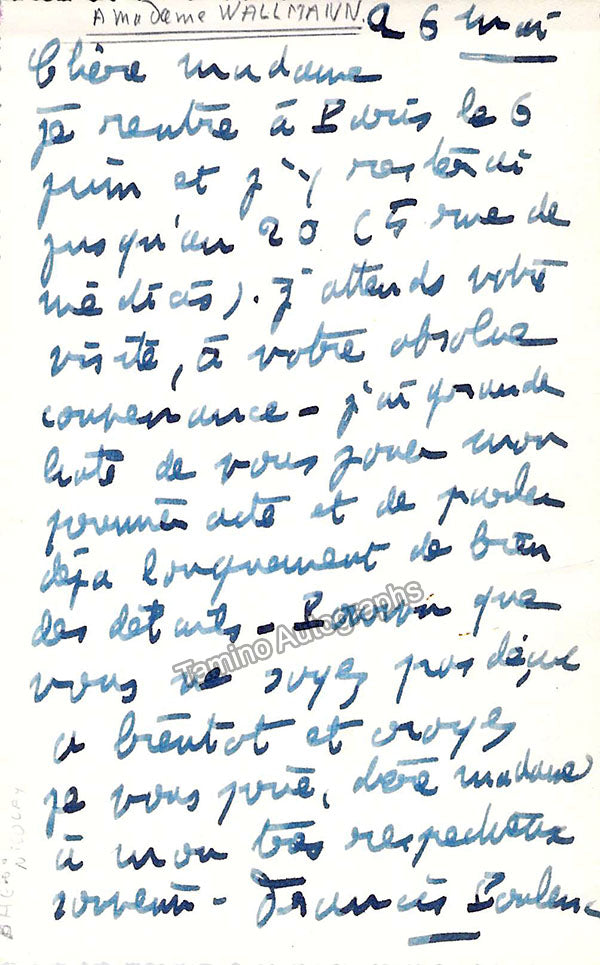 A Madame WALLMANN.
26 mai
Chère madame
Je rentre à Paris le 6
juin et j'y resterai
jusqu'au 20 (5 rue de
médicis). J'attends votre
visite, à votre absolue
convenance - j'ai grande
hâte de vous jouer mon
premier acte et de parler
déjà longuement de bien
des détails - Pourvu que
vous ne soyez pas déçue
a bientot et croyez
je vous prie, chère madame
à mon très respectueux
souvenir - Francis Poulenc
Tamino Autographs
NICOLAY